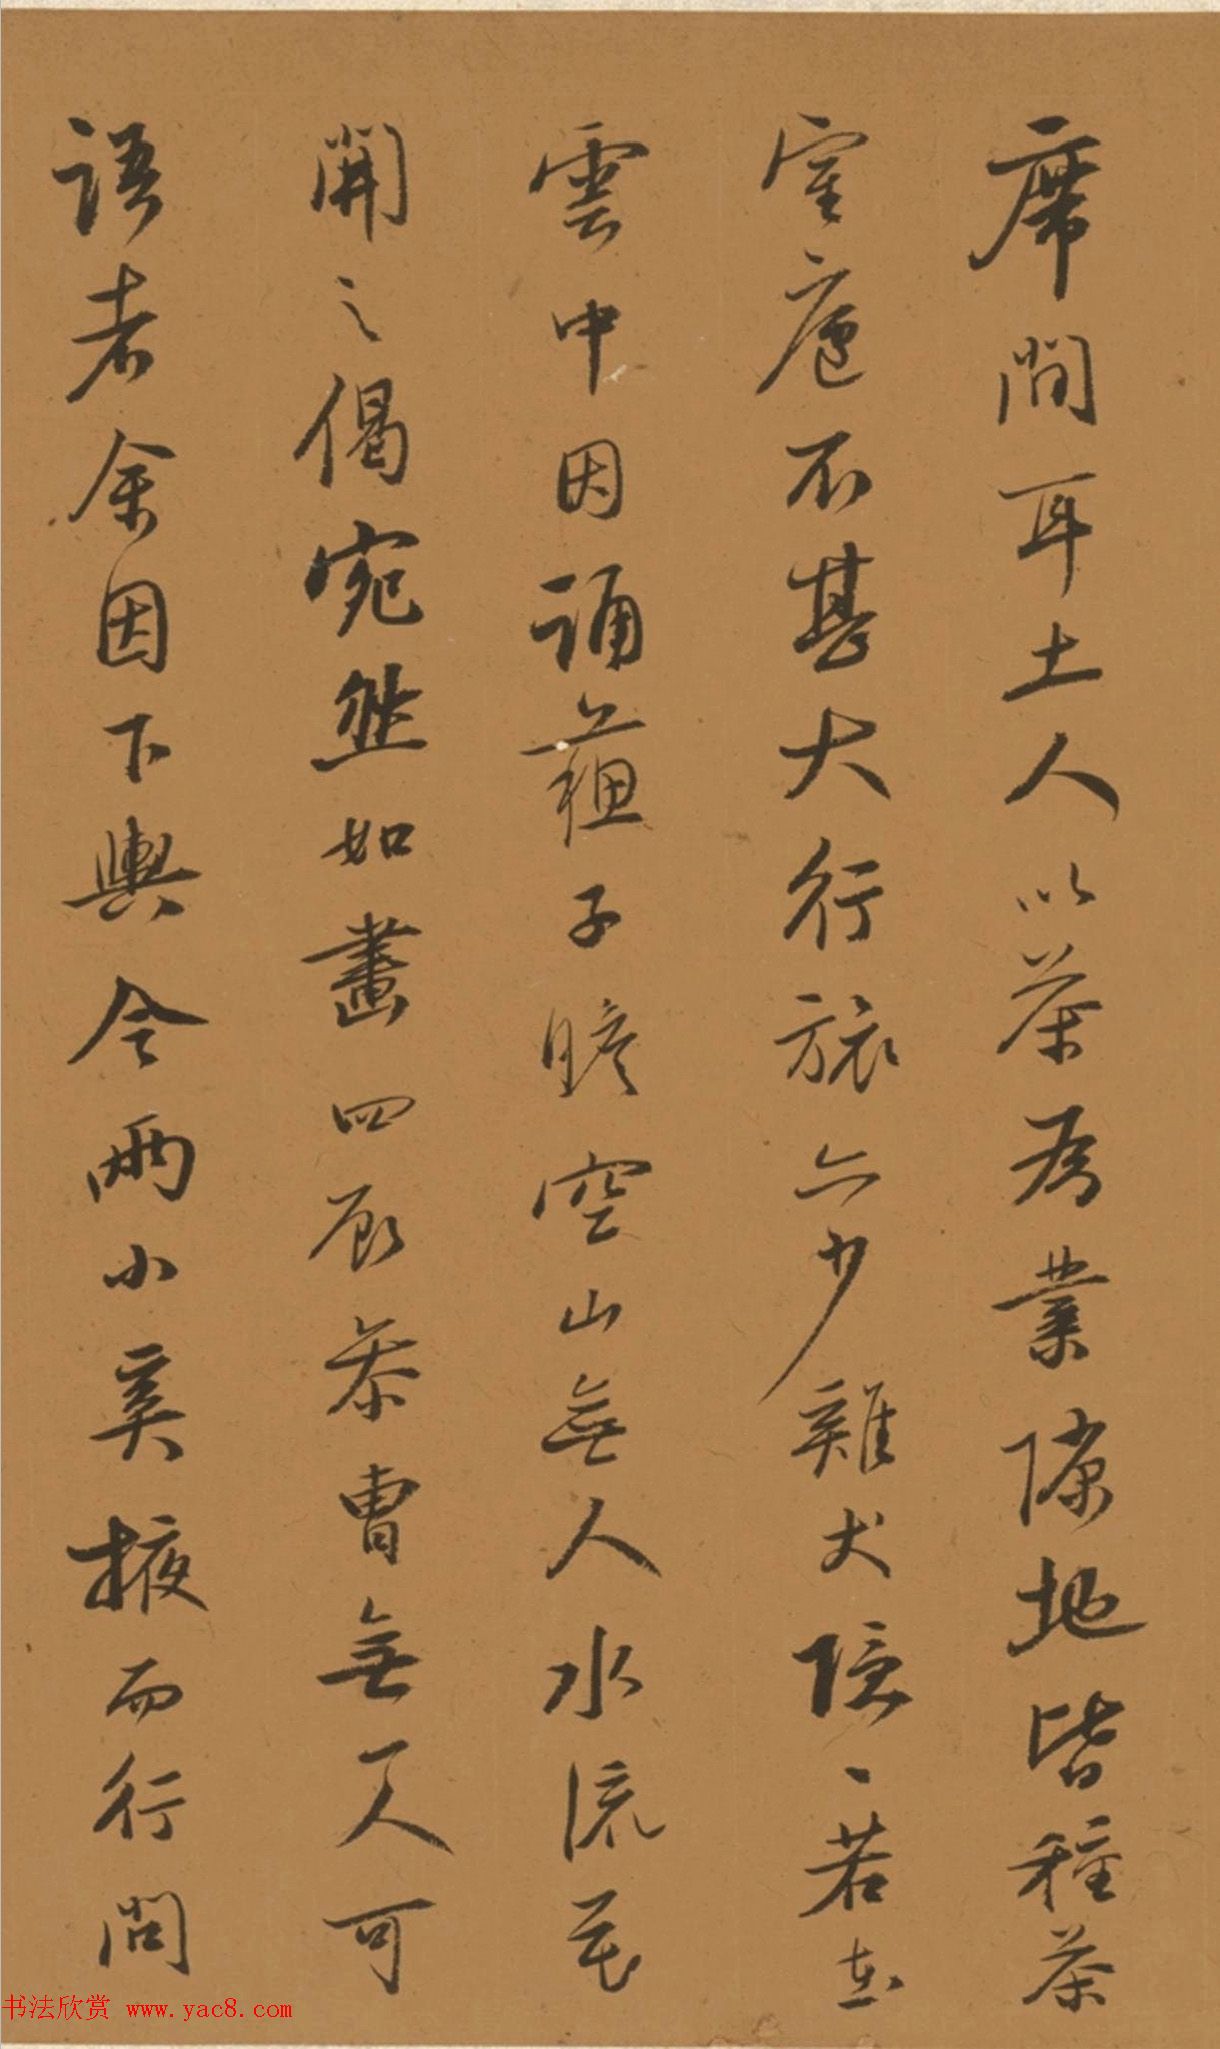 席間耳土人以茶為業隙地皆種茶
室廬不甚大行旅亦少雞犬隱〻若在
雲中因誦蘓子瞻空山無人水流花
開之偈宛然如畫四顧茶曹無一人可
語者余因下輿令兩小奚掖而行問
书法欣赏 www.yac8.com